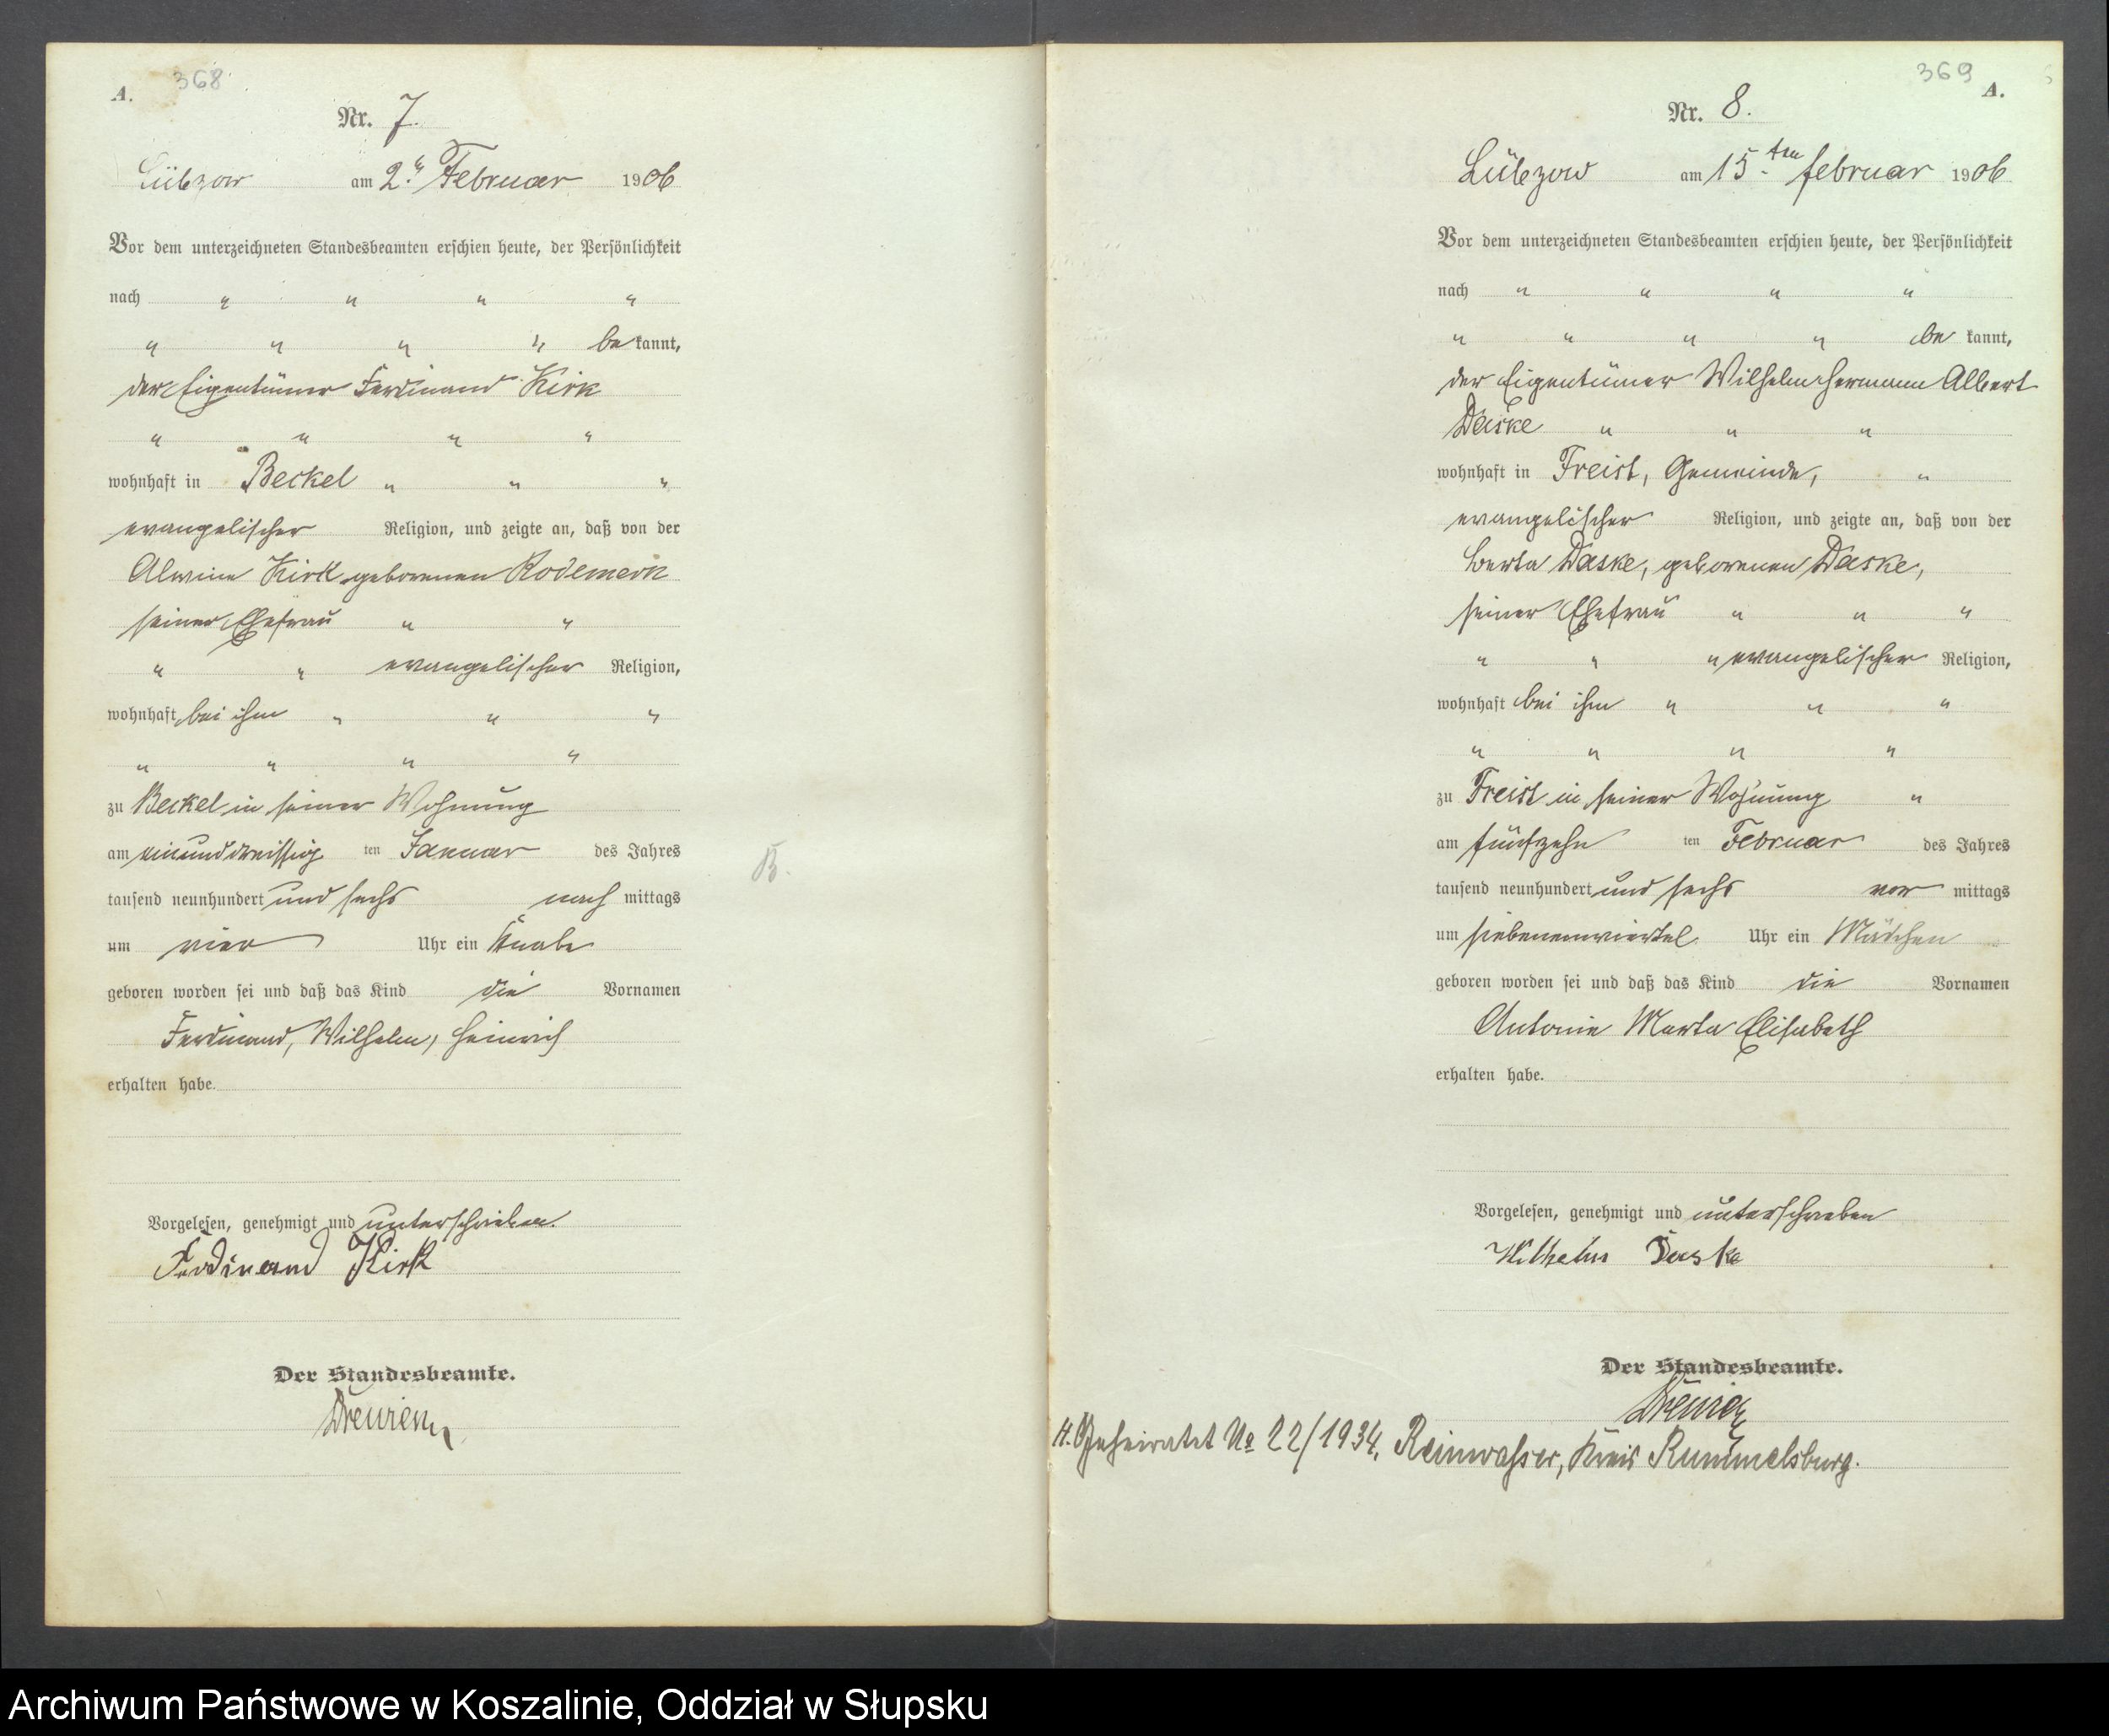 A. 368
Nr. 7.
Lübzow am 2. Februar 1906
Vor dem unterzeichneten Standesbeamten erschien heute, der Persönlichkeit
nach " " " "
" " " " be kannt,
der Eigentümer Ferdinand Kirk
" " " "
wohnhaft in Beckel " " "
evangelischer Religion, und zeigte an, daß von der
Alwine Kirk geborenen Rodemerk
seiner Ehefrau " "
" " evangelischer Religion,
wohnhaft bei ihm " " "
" " " "
zu Beckel in seiner Wohnung
am einunddreissig ten Januar des Jahres
tausend neunhundert und sechs nach mittags
um vier Uhr ein Knabe
geboren worden sei und daß das Kind die Vornamen
Ferdinand, Wilhelm, Heinrich
erhalten habe.
Vorgelesen, genehmigt und unterschrieben.
Ferdinand Kirk
Der Standesbeamte.
B.
369 A.
Nr. 8.
Lübzow am 15.ten Februar 1906
Vor dem unterzeichneten Standesbeamten erschien heute, der Persönlichkeit
nach " " " "
" " " " be kannt,
der Eigentümer Wilhelm Hermann Albert
Daske " " "
wohnhaft in Freist, Gemeinde, "
evangelischer Religion, und zeigte an, daß von der
Berta Daske, geborenen Daske,
seiner Ehefrau " " "
" " " evangelischer Religion,
wohnhaft bei ihm " " "
" " " "
zu Freist in seiner Wohnung "
am fünfzehn ten Februar des Jahres
tausend neunhundert und sechs vor mittags
um siebeneinviertel Uhr ein Mädchen
geboren worden sei und daß das Kind die Vornamen
Antonie Marta Elisabeth
erhalten habe.
Vorgelesen, genehmigt und unterschrieben
Wilhelm Daske
Der Standesbeamte.
H. Geheiratet No 22/1934, Reinwasser, Kreis Rummelsburg.
Archiwum Państwowe w Koszalinie, Oddział w Słupsku